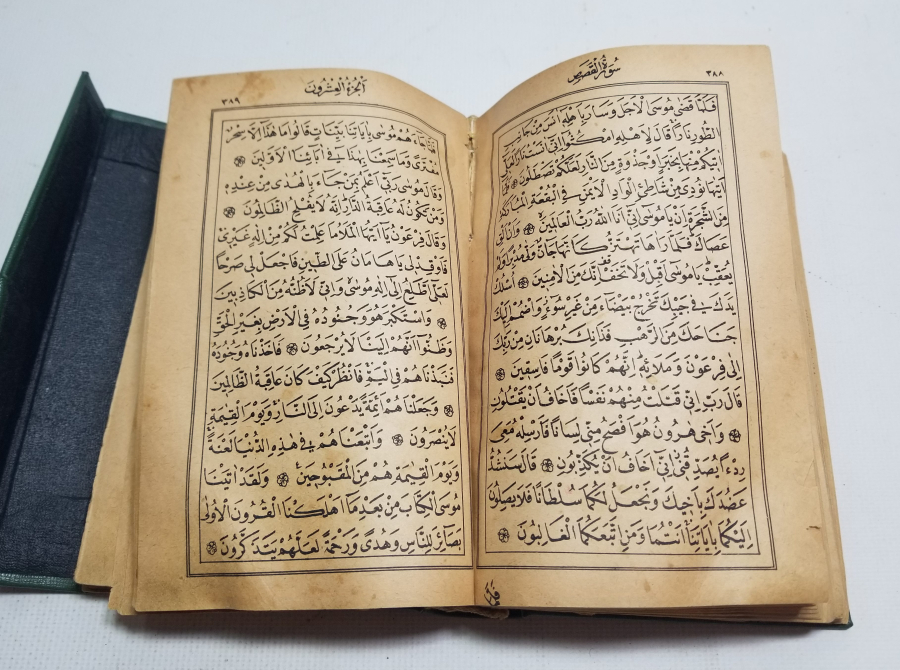 سُورَةُ الْقَصَصِ ٣٨٨
فَلَمَّا قَضٰى مُوسَى الْاَجَلَ وَسَارَ بِاَهْلِهِ اٰنَسَ مِنْ جَانِبِ
الطُّورِ نَارًا قَالَ لِاَهْلِهِ امْكُثُوا اِنِّي اٰنَسْتُ نَارًا لَعَلِّي
اٰتِيكُمْ مِنْهَا بِخَبَرٍ اَوْ جَذْوَةٍ مِنَ النَّارِ لَعَلَّكُمْ تَصْطَلُونَ ۞ فَلَمَّا
اَتٰيهَا نُودِيَ مِنْ شَاطِئِ الْوَادِ الْاَيْمَنِ فِي الْبُقْعَةِ الْمُبَارَكَةِ
مِنَ الشَّجَرَةِ اَنْ يَا مُوسٰى اِنِّي اَنَا اللّٰهُ رَبُّ الْعَالَمِينَ ۞ وَاَنْ اَلْقِ
عَصَاكَ فَلَمَّا رَاٰهَا تَهْتَزُّ كَاَنَّهَا جَانٌّ وَلّٰى مُدْبِرًا وَلَمْ
يُعَقِّبْ يَا مُوسٰى اَقْبِلْ وَلَا تَخَفْ اِنَّكَ مِنَ الْاٰمِنِينَ ۞ اُسْلُكْ
يَدَكَ فِي جَيْبِكَ تَخْرُجْ بَيْضَاءَ مِنْ غَيْرِ سُوءٍ وَاضْمُمْ اِلَيْكَ
جَنَاحَكَ مِنَ الرَّهْبِ فَذَانِكَ بُرْهَانَانِ مِنْ رَبِّكَ
اِلٰى فِرْعَوْنَ وَمَلَائِهِ اِنَّهُمْ كَانُوا قَوْمًا فَاسِقِينَ ۞
قَالَ رَبِّ اِنِّي قَتَلْتُ مِنْهُمْ نَفْسًا فَاَخَافُ اَنْ يَقْتُلُونِ
۞ وَاَخِي هٰرُونُ هُوَ اَفْصَحُ مِنِّي لِسَانًا فَاَرْسِلْهُ مَعِيَ
رِدْءًا يُصَدِّقُنِي اِنِّي اَخَافُ اَنْ يُكَذِّبُونِ ۞ قَالَ سَنَشُدُّ
عَضُدَكَ بِاَخِيكَ وَنَجْعَلُ لَكُمَا سُلْطَانًا فَلَا يَصِلُونَ
اِلَيْكُمَا بِاٰيَاتِنَا اَنْتُمَا وَمَنِ اتَّبَعَكُمَا الْغَالِبُونَ ۞
اَلْجُزْءُ الْعِشْرُونَ ٣٨٩
فَلَمَّا جَاءَهُمْ مُوسٰى بِاٰيَاتِنَا بَيِّنَاتٍ قَالُوا مَا هٰذَا اِلَّا سِحْرٌ
مُفْتَرًى وَمَا سَمِعْنَا بِهٰذَا فِي اٰبَائِنَا الْاَوَّلِينَ ۞
وَقَالَ مُوسٰى رَبِّي اَعْلَمُ بِمَنْ جَاءَ بِالْهُدٰى مِنْ عِنْدِهِ
وَمَنْ تَكُونُ لَهُ عَاقِبَةُ الدَّارِ اِنَّهُ لَا يُفْلِحُ الظَّالِمُونَ ۞
وَقَالَ فِرْعَوْنُ يَا اَيُّهَا الْمَلَاُ مَا عَلِمْتُ لَكُمْ مِنْ اِلٰهٍ غَيْرِي
فَاَوْقِدْ لِي يَا هَامَانُ عَلَى الطِّينِ فَاجْعَلْ لِي صَرْحًا
لَعَلِّي اَطَّلِعُ اِلٰى اِلٰهِ مُوسٰى وَاِنِّي لَاَظُنُّهُ مِنَ الْكَاذِبِينَ
۞ وَاسْتَكْبَرَ هُوَ وَجُنُودُهُ فِي الْاَرْضِ بِغَيْرِ الْحَقِّ
وَظَنُّوا اَنَّهُمْ اِلَيْنَا لَا يُرْجَعُونَ ۞ فَاَخَذْنَاهُ وَجُنُودَهُ
فَنَبَذْنَاهُمْ فِي الْيَمِّ فَانْظُرْ كَيْفَ كَانَ عَاقِبَةُ الظَّالِمِينَ
۞ وَجَعَلْنَاهُمْ اَئِمَّةً يَدْعُونَ اِلَى النَّارِ وَيَوْمَ الْقِيٰمَةِ
لَا يُنْصَرُونَ ۞ وَاَتْبَعْنَاهُمْ فِي هٰذِهِ الدُّنْيَا لَعْنَةً
وَيَوْمَ الْقِيٰمَةِ هُمْ مِنَ الْمَقْبُوحِينَ ۞ وَلَقَدْ اٰتَيْنَا
مُوسَى الْكِتَابَ مِنْ بَعْدِ مَا اَهْلَكْنَا الْقُرُونَ الْاُولٰى
بَصَائِرَ لِلنَّاسِ وَهُدًى وَرَحْمَةً لَعَلَّهُمْ يَتَذَكَّرُونَ ۞